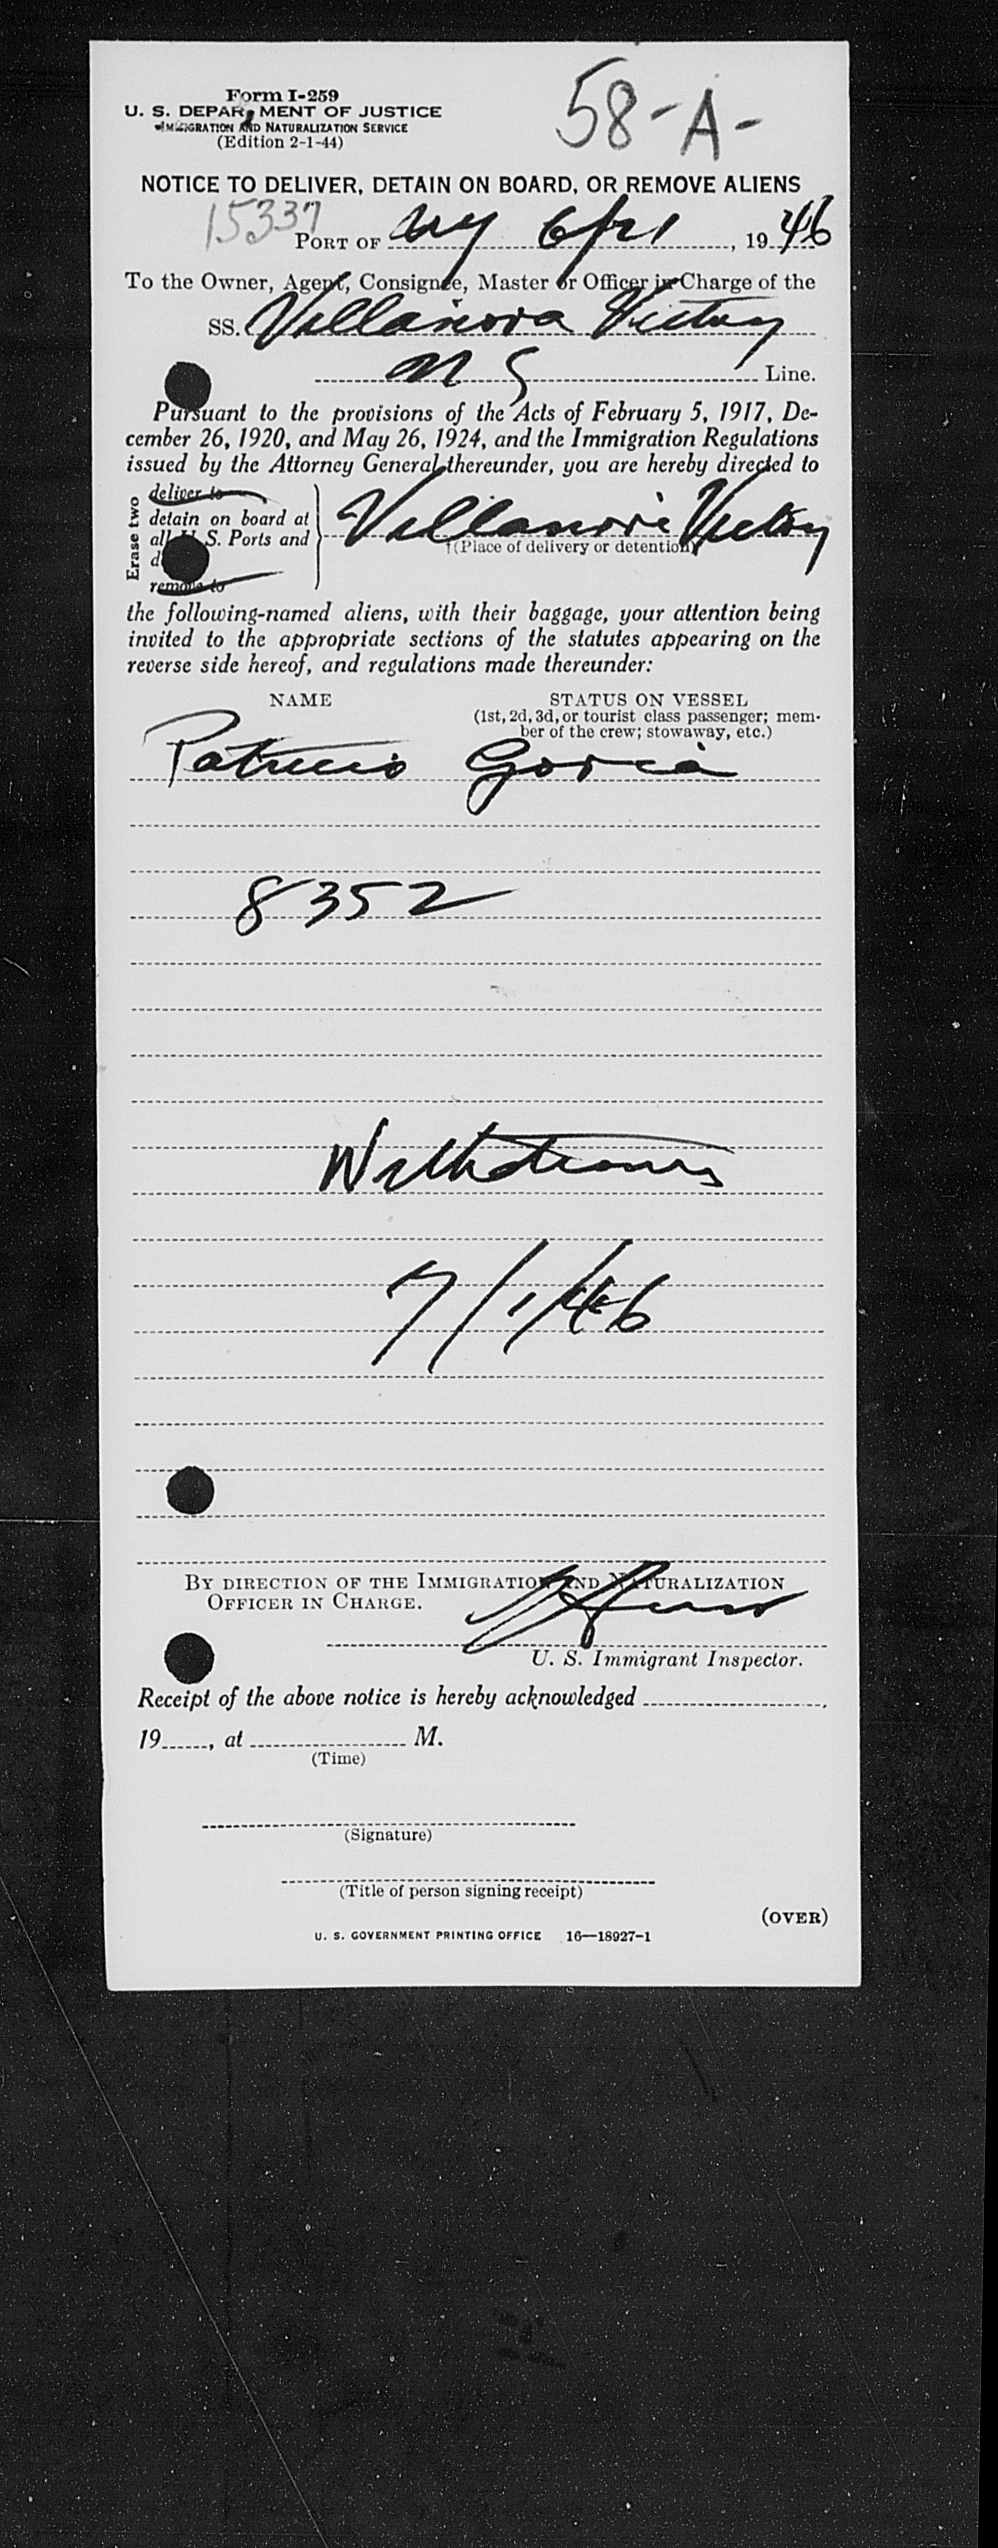 58-A-
Form I-259
U. S. DEPARTMENT OF JUSTICE
IMMIGRATION AND NATURALIZATION SERVICE
(Edition 2-1-44)
NOTICE TO DELIVER, DETAIN ON BOARD, OR REMOVE ALIENS
15337
PORT OF NY 6/21, 1946
To the Owner, Agent, Consignee, Master or Officer in Charge of the
SS. Villanova Victory
Line.
Pursuant to the provisions of the Acts of February 5, 1917, De-
cember 26, 1920, and May 26, 1924, and the Immigration Regulations
issued by the Attorney General thereunder, you are hereby directed to
Erase two
deliver to
detain on board at
all U. S. Ports and
remove to
Villanova Victory
(Place of delivery or detention)
the following-named aliens, with their baggage, your attention being
invited to the appropriate sections of the statutes appearing on the
reverse side hereof, and regulations made thereunder:
NAME STATUS ON VESSEL
(1st, 2d, 3d, or tourist class passenger; mem-
ber of the crew; stowaway, etc.)
Patricio
8352
Withdrawn
7/1/46
BY DIRECTION OF THE IMMIGRATION AND NATURALIZATION
OFFICER IN CHARGE.
U. S. Immigrant Inspector.
Receipt of the above notice is hereby acknowledged
19, at M.
(Time)
(Signature)
(Title of person signing receipt)
(OVER)
U. S. GOVERNMENT PRINTING OFFICE 16—18927-1